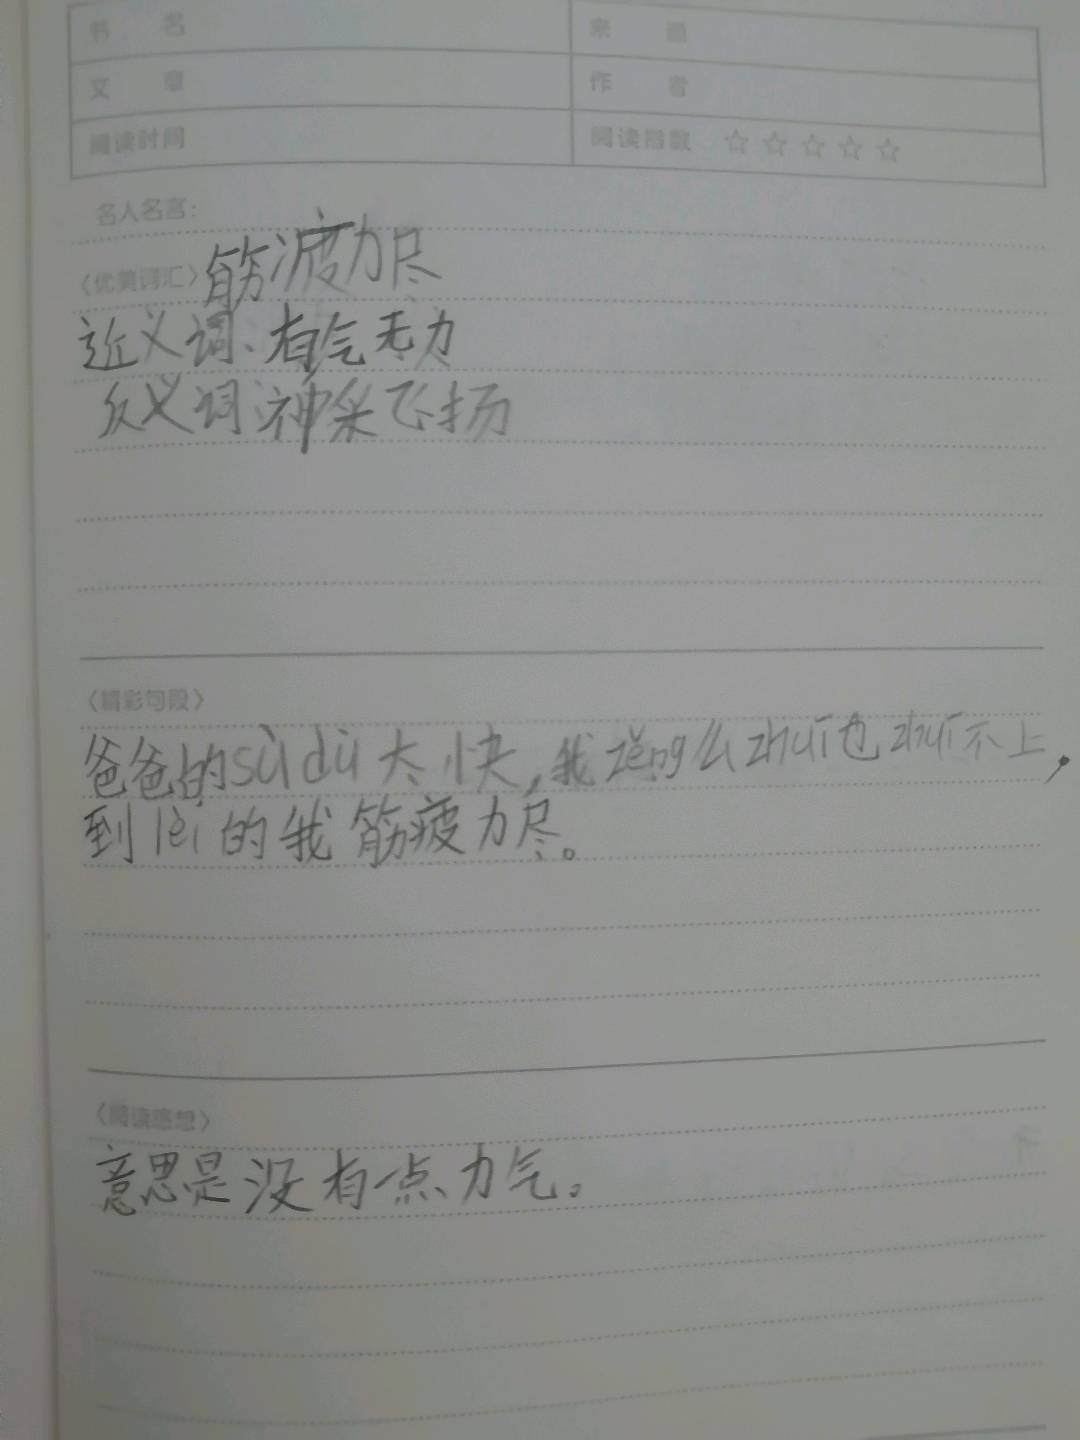 书 名 来 源
文 章 作 者
阅读时间 阅读指数 ☆☆☆☆☆
名人名言：
〈优美词汇〉筋疲力尽
近义词、有气无力
反义词：神采飞扬
〈精彩句段〉
爸爸的sùdù太快，我zěng么zhuī也zhuī不上，
到lèi的我筋疲力尽。
〈阅读感想〉
意思是没有一点力气。